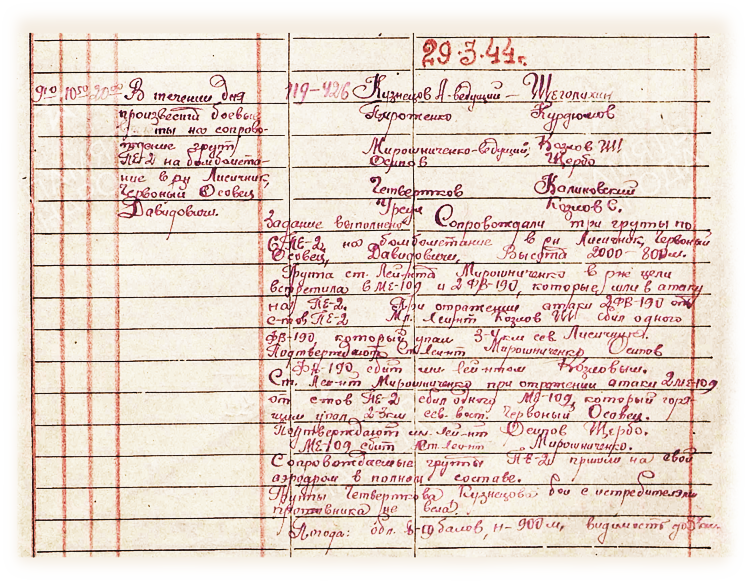 29.3.44г.
9¹⁰ 10⁵⁰ 20⁰⁰ В течении дня 119-У2Б Кузнецов А-ведущий - Щеголихин
произвести боевые Пироженко Курдюмов
на сопрово-
ждение групп Мирошниченко-ведущий, Козлов Ш
ПЕ-2 на бомбомета- Осипов Щербо
ние в рн Лисичник,
Червоный Осовец, Четвертков Калиновский
Давидовичи. Козлов С.
Задание выполнено Сопровождали три группы по
6 ПЕ-2, на бомбометание в рн Лисичник, Червоный
Осовец, Давидовичи. Высота 2000-800м.
Группа ст. Лей-нта Мирошниченко в р-не цели
встретила 8 МЕ-109 и 2 ФВ-190, которые шли в атаку
на ПЕ-2. При отражении атаки 2 ФВ-190 от
с-тов ПЕ-2 Мл. Лейт-нт Козлов Ш сбил одного
ФВ-190 который упал 3-4 км сев. Лисичник.
Подтверждают Ст. Лей-нт Мирошниченко Осипов
ФВ-190 сбит мл. лей-нтом Козловым.
Ст. Лей-нт Мирошниченко при отражении атаки 2 МЕ-109
от с-тов ПЕ-2 сбил одного МЕ-109, который горя-
щим упал 2-3 км сев. вост. Червоный Осовец.
Подтверждают мл. лей-нт Осипов Щербо.
МЕ-109 сбит Ст. лей-нт Мирошниченко.
Сопровождаемые группы ПЕ-2 пришли на свой
аэродром в полном составе.
Группы Четверткова Кузнецова бои с истребителями
противника не вела.
Погода: обл. 8-10 балов, н-900 м, видимость до